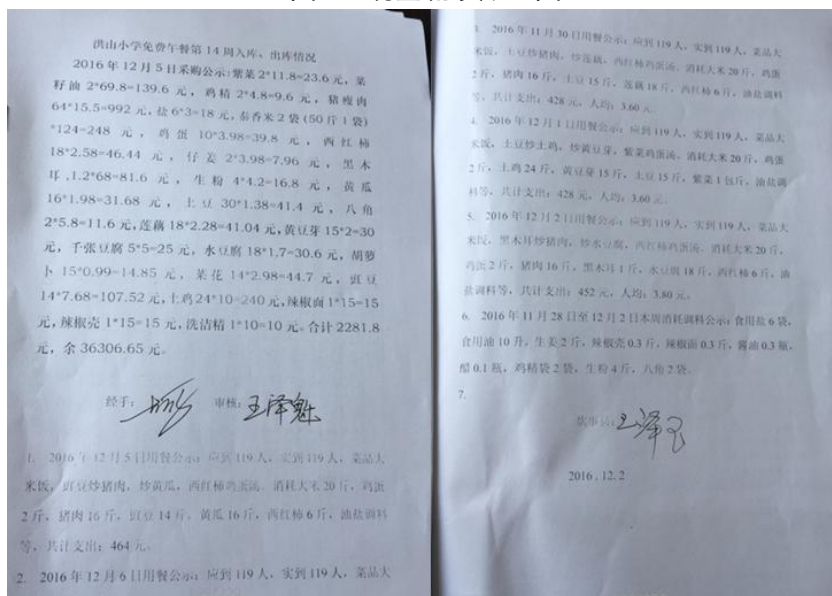 洪山小学免费午餐第 14 周入库、出库情况
2016 年 12 月 5 日采购公示:紫菜 2*11.8=23.6 元, 菜
籽油 2*69.8=139.6 元, 鸡精 2*4.8=9.6 元, 猪瘦肉
64*15.5=992 元, 盐 6*3=18 元, 泰香米 2 袋 (50 斤 1 袋)
*124=248 元, 鸡蛋 10*3.98=39.8 元, 西红柿
18*2.58=46.44 元, 仔姜 2*3.98=7.96 元, 黑木
耳 ,1.2*68=81.6 元, 生粉 4*4.2=16.8 元, 黄瓜
16*1.98=31.68 元, 土豆 30*1.38=41.4 元, 八角
2*5.8=11.6 元, 莲藕 18*2.28=41.04 元, 黄豆芽 15*2=30
元, 千张豆腐 5*5=25 元, 水豆腐 18*1.7=30.6 元, 胡萝
卜 15*0.99=14.85 元, 菜花 14*2.98=44.7 元, 豇豆
14*7.68=107.52 元, 土鸡 24*10=240 元, 辣椒面 1*15=15
元, 辣椒壳 1*15=15 元, 洗洁精 1*10=10 元。合计 2281.8
元, 余 36306.65 元。
经手: 审核: 王泽魁
1. 2016 年 12 月 5 日用餐公示: 应到 119 人, 实到 119 人, 菜品大
米饭, 豇豆炒猪肉, 炒黄瓜, 西红柿鸡蛋汤。消耗大米 20 斤, 鸡蛋
2 斤, 猪肉 16 斤, 豇豆 14 斤, 黄瓜 16 斤, 西红柿 6 斤, 油盐调料
等, 共计支出: 464 元。
2. 2016 年 12 月 6 日用餐公示: 应到 119 人, 实到 119 人, 菜品大
3. 2016 年 11 月 30 日用餐公示: 应到 119 人, 实到 119 人, 菜品大
米饭, 土豆炒猪肉, 炒莲藕, 西红柿鸡蛋汤。消耗大米 20 斤, 鸡蛋
2 斤, 猪肉 16 斤, 土豆 15 斤, 莲藕 18 斤, 西红柿 6 斤, 油盐调料
等, 共计支出: 428 元, 人均: 3.60 元。
4. 2016 年 12 月 1 日用餐公示: 应到 119 人, 实到 119 人, 菜品大
米饭, 土豆炒土鸡, 炒黄豆芽, 紫菜鸡蛋汤。消耗大米 20 斤, 鸡蛋
2 斤, 土鸡 24 斤, 黄豆芽 15 斤, 土豆 15 斤, 紫菜 1 包斤, 油盐调
料等, 共计支出: 428 元, 人均: 3.60 元。
5. 2016 年 12 月 2 日用餐公示: 应到 119 人, 实到 119 人, 菜品大
米饭, 黑木耳炒猪肉, 炒水豆腐, 西红柿鸡蛋汤。消耗大米 20 斤,
鸡蛋 2 斤, 猪肉 16 斤, 黑木耳 1 斤, 水豆腐 18 斤, 西红柿 6 斤, 油
盐调料等, 共计支出: 452 元, 人均: 3.80 元。
6. 2016 年 11 月 28 日至 12 月 2 日本周消耗调料公示: 食用盐 6 袋,
食用油 10 升, 生姜 2 斤, 辣椒壳 0.3 斤, 辣椒面 0.3 斤, 酱油 0.3 瓶,
醋 0.1 瓶, 鸡精袋 2 袋, 生粉 4 斤, 八角 2 袋。
7.
炊事员:
2016 . 12. 2